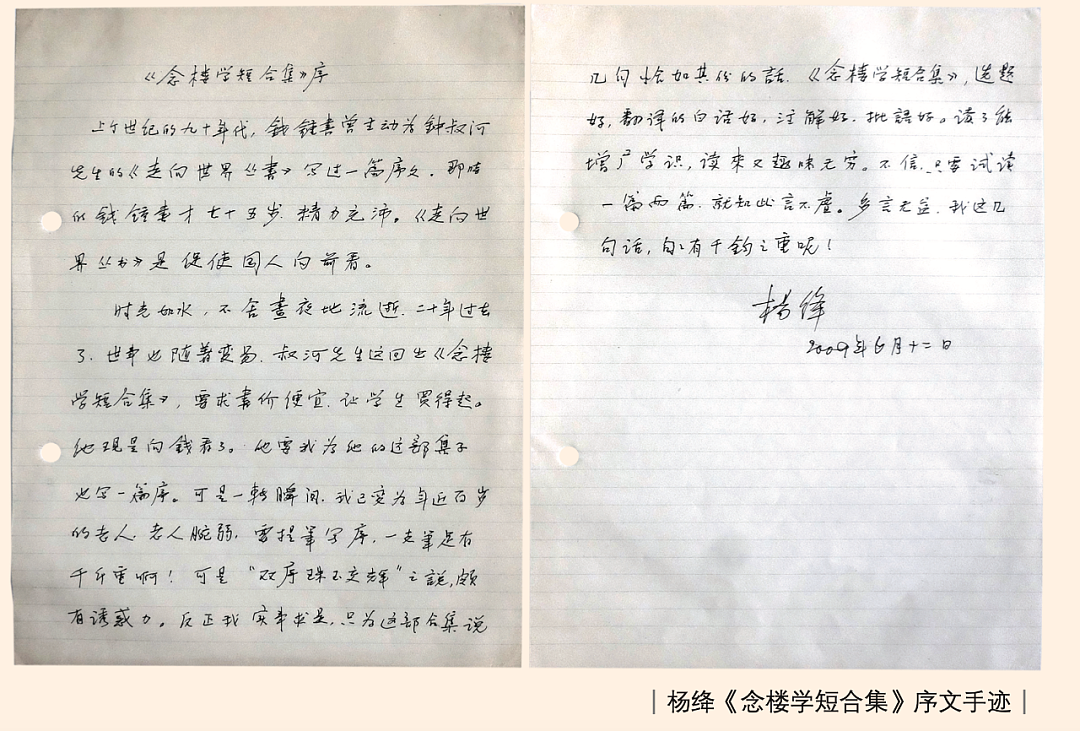 《念楼学短合集》序
上个世纪的九十年代，钱锺書曾主动为钟叔河
先生的《走向世界丛書》写过一篇序文，那時
的钱锺書才七十五岁，精力充沛。《走向世
界丛书》是促使国人向前看。
时光如水，不舍晝夜地流逝，二十年过去
了，世事也随着变易，叔河先生这回出《念樓
学短合集》，要求書价便宜，让学生買得起。
他现是向錢看了。他要我为他的这部集子
也写一篇序。可是一转瞬间，我已变为年近百岁
的老人，老人腕弱，要提筆写序，一支筆足有
千斤重啊！可是“双序珠玉交辉”之説，頗
有诱惑力。反正我实事求是，只为这部合集说
几句恰如其份的話.《念樓学短合集》，选题
好，翻译的白话好，注解好，批語好。读了能
增广学识，读来又趣味无穷。不信，只要试读
一篇两篇，就知此言不虚。多言无益，我这几
句话，句句有千鈞之重呢！
杨绛
2009年6月十二日
｜杨绛《念楼学短合集》序文手迹｜